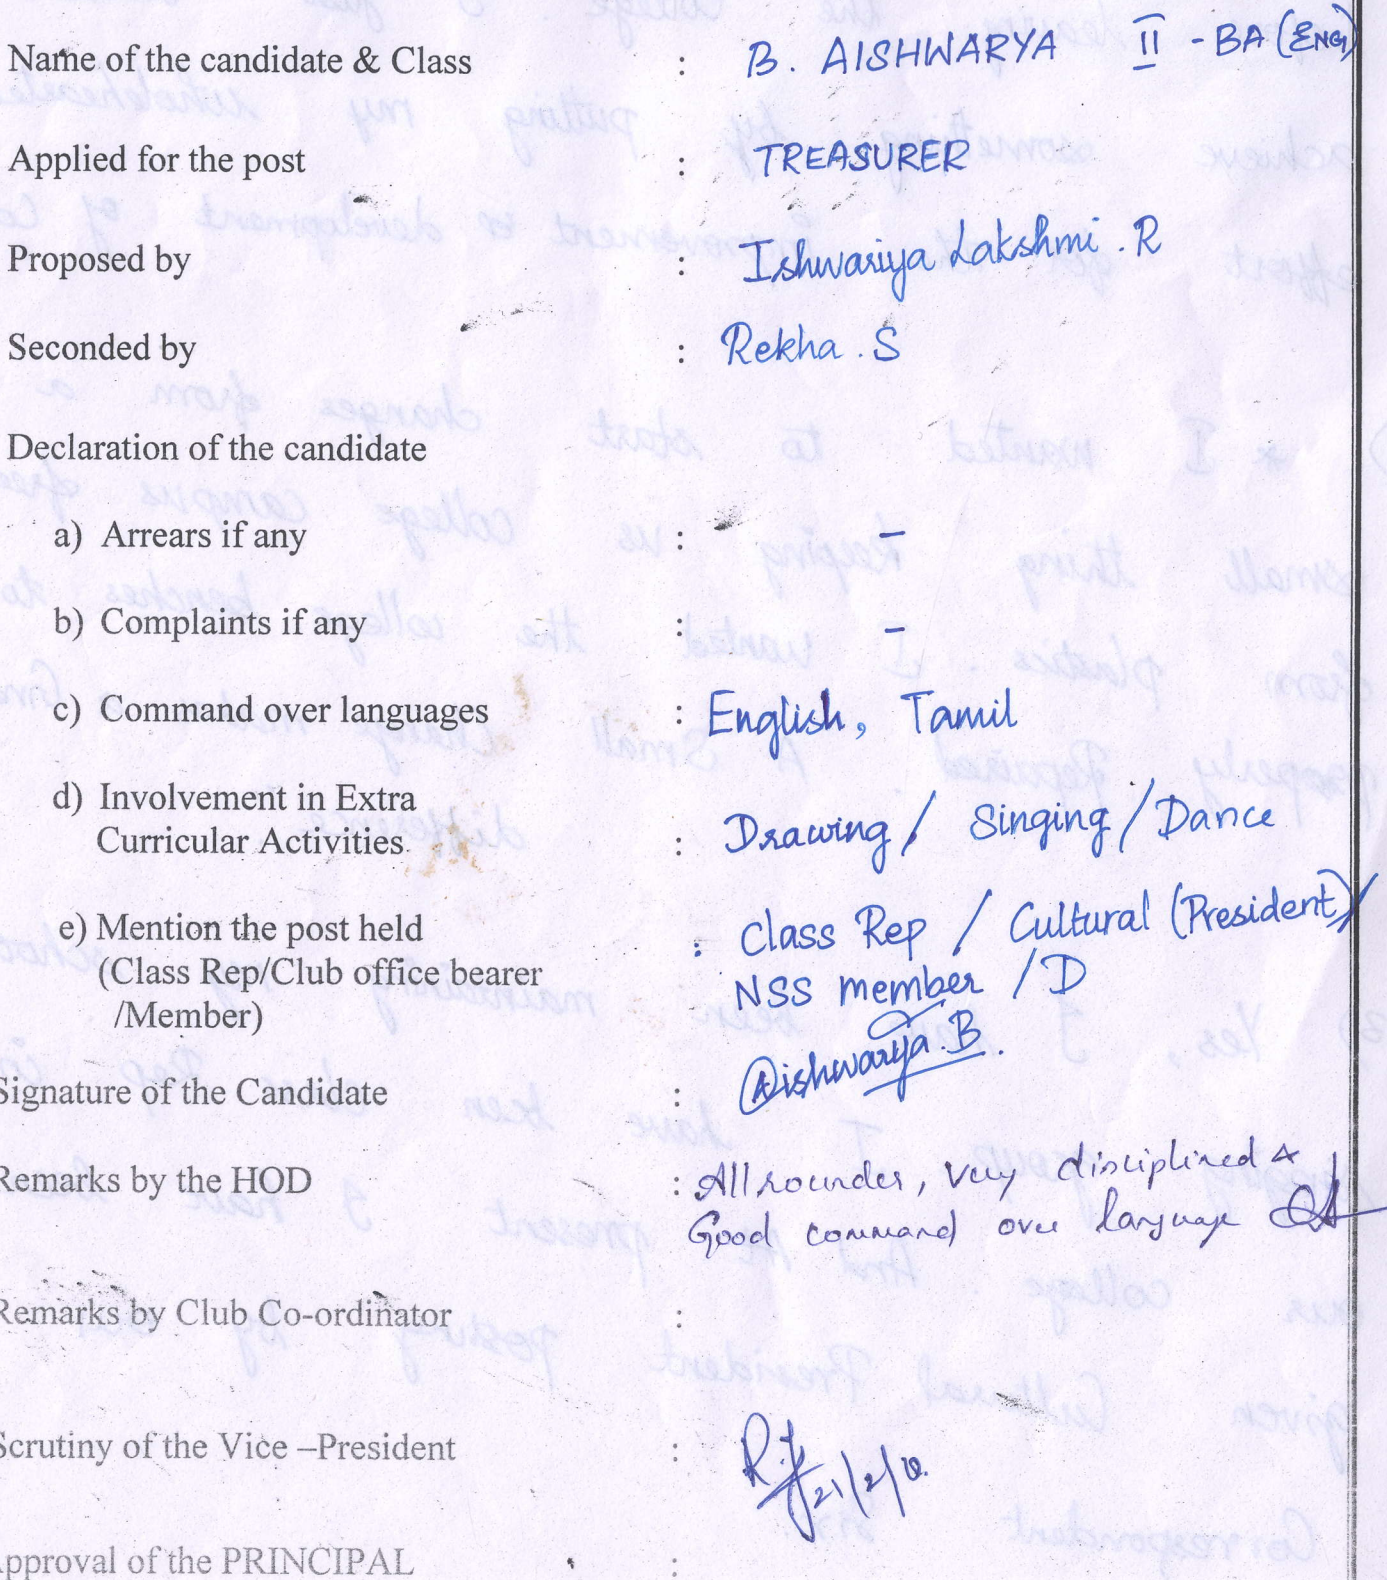 Name of the candidate & Class : B. AISHWARYA II - BA (ENG)
Applied for the post : TREASURER
Proposed by : Ishwariya Lakshmi . R
Seconded by : Rekha . S
Declaration of the candidate
a) Arrears if any : -
b) Complaints if any : -
c) Command over languages : English, Tamil
d) Involvement in Extra
Curricular Activities : Drawing / Singing / Dance
e) Mention the post held : Class Rep / Cultural (President) /
(Class Rep/Club office bearer NSS member / D
/Member)
Signature of the Candidate : Aishwarya . B.
Remarks by the HOD : All rounder, Very disciplined &
Good command over language
Remarks by Club Co-ordinator :
Scrutiny of the Vice –President :
pproval of the PRINCIPAL :